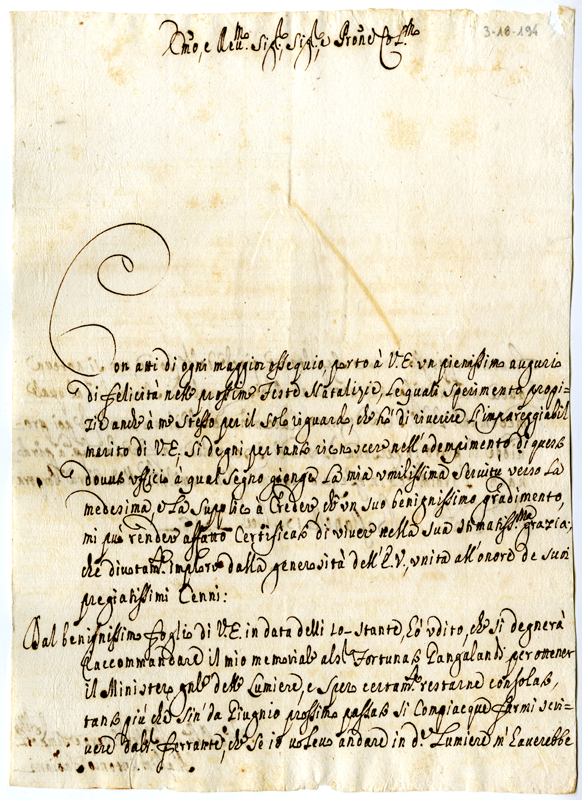 3-18-194
Emo, e Reu.mo Sig.r, Sig.r, e Prone Col.mo
Con atti di ogni maggior ossequio, porto à V.E. vn pienissimo augurio
di felicità nelle prossime Feste Natalizie, le quali sperimento propi=
zie anche à me stesso per il solo riguardo, che hò di riuerire l'impareggiabil
merito di V.E. Si degni per tanto riconoscere nell'adempimento di questo
douuto vfficio à qual segno gionge la mia vmilissima seruitù verso la
medesima, e La supplico à Creder, ch'un suo benignissimo gradimento,
mi può render affatto Certificato di viuer nella sua stimatiss.ma grazia;
che diuotam.e imploro dalla generosità dell'E.V., vnita all'onore de suoi
pregiatissimi Cenni:
Dal benignissimo foglio di V.E. in data delli 10 Stante, hò vdito, che si degnerà
Raccommandare il mio memoriale al Fortunato Vangalandi, per ottener
il Ministero gnle delle Lumiere, e spero certam.te restarne consolato,
tanto più che sin da Giugnio prossimo passato si Compiacque farmi scri=
uere dal Ferrante, che se io voleuo andare in d.e Lumiere m'hauerebbe